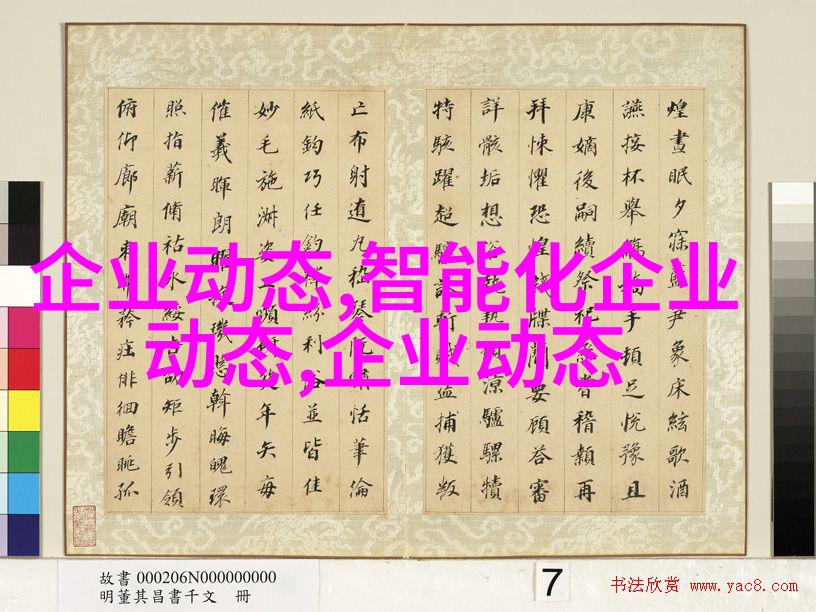 煌晝眠夕寐藍尹象床絃歌酒
讌接杯舉觴矯手頓足悅豫且
康嫡後嗣續祭祀稽顙再
拜悚懼恐惶牋牒簡要顧答審
詳骸垢想浴執熱涼驢騾犢
特駭躍超驤誅斬賊盜捕獲叛
亡布射遼丸嵇琴阮嘯恬筆倫
紙鈞巧任釣釋紛利俗並皆佳
妙毛施淑姿工顰年矢每
催羲暉朗曜璣懸斡晦魄環
照指薪脩祜永綏吉矩步引領
俯仰廊廟束帶矜莊徘徊瞻眺孤
企业动态,智能化企业
动态,企业动态
故書 000206N000000000
明董其昌書千文 冊
7
书法欣赏 www.yac8.com